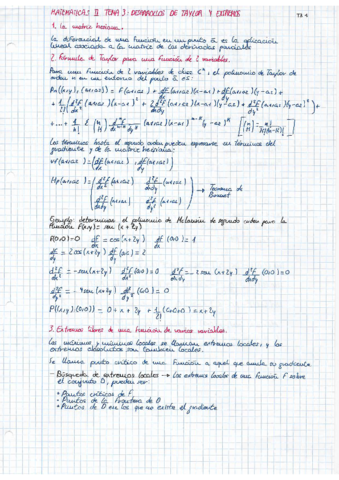 MATEMÁTICAS II TEMA 3: DESARROLLOS DE TAYLOR Y EXTREMOS
1. La matriz hessiana.
La diferencial de una función en un punto ā es la aplicación
lineal asociada a la matriz de las derivadas parciales
2. Fórmula de Taylor para una función de 2 variables.
Para una función de 2 variables de clase Cⁿ, el polinomio de Taylor de
orden n en un entorno del punto ā es:
Los términos hasta el segundo orden pueden expresarse en términos del
gradiente y de la matriz hessiana:
∇f(a1,a2) = (df/dx (a1,a2), df/dy (a1,a2))
Hf(a1,a2) = (d²f/dx² (a1,a2) d²f/dxdy (a1,a2)
d²f/dxdy (a1,a2) d²f/dy² (a1,a2)) → Teorema de
Ejemplo: determinar el polinomio de McLaurin de segundo orden para la
función f(x,y) = sen(x+2y)
f(0,0)=0 df/dx = cos(x+2y) df/dx (0,0) = 1
df/dy = 2cos(x+2y) df/dy (0,0) = 2
d²f/dx² = -sen(x+2y) d²f/dx² (0,0) = 0 d²f/dxdy = -2sen(x+2y) d²f/dxdy (0,0) = 0
d²f/dy² = -4sen(x+2y) d²f/dy² (0,0) = 0
P((x,y),(0,0)) = 0 + x + 2y + 1/2! (0+0+0) = x + 2y
3. Extremos libres de una función de varias variables.
Los máximos y mínimos locales se llaman extremos locales, y los
extremos absolutos son también locales.
Se llama punto crítico de una función a aquel que anula su gradiente
- Búsqueda de extremos locales → Los extremos locales de una función f sobre
el conjunto D, pueden ser:
• Puntos críticos de f
• Puntos de la frontera de D
• Puntos de D en los que no existe el gradiente